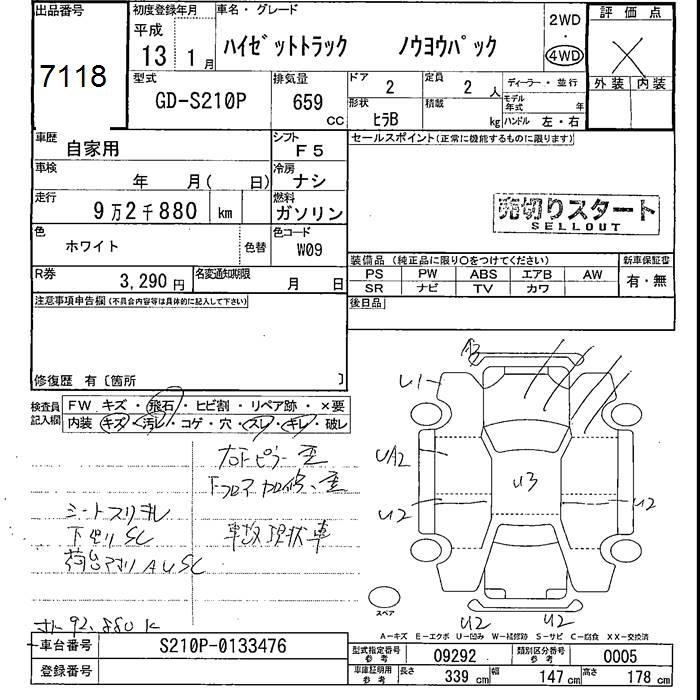 出品番号 初度登録年月 車名・グレード 評価点
7118
平成
13 1月
ハイゼットトラック ノウヨウパック
2WD
・
4WD
外装 内装
型式 排気量 ドア 定員 ディーラー・並行
GD-S210P 659 CC 2 2人
形状 積載 モデル年式 年
ヒラB kg ハンドル 左・右
車歴 シフト セールスポイント(正常に機能するものに限ります)
自家用 F5
車検 冷房
年 月( 日) ナシ
走行 燃料
9万2千880 km ガソリン
売切りスタート
SELLOUT
色 色替 色コード
ホワイト W09
装備品(純正品に限り○をつけてください) 新車保証書
PS PW ABS エアB AW
SR ナビ TV カワ
有・無
R券 名変通知期限
3,290円 月 日
後日品
注意事項申告欄(不具合内容等は具体的に記入して下さい)
修復歴 有〔箇所 〕
検査員記入欄
FW キズ・飛石・ヒビ割・リペア跡・×要
内装・キズ・汚レ・コゲ・穴・スレ・キレ・破レ
シートスリキレ
事故現状車
A3
U1
UA2
U2
U3
U2
U2
U2
スペア
A-キズ E-エクボ U-凹み W-補修跡 S-サビ C-腐食 XX-交換済
車台番号 S210P-0133476
登録番号
型式指定番号 参考 09292 類別区分番号 参考 0005
車庫証明用 参考 長さ 339cm 幅 147cm 高さ 178cm